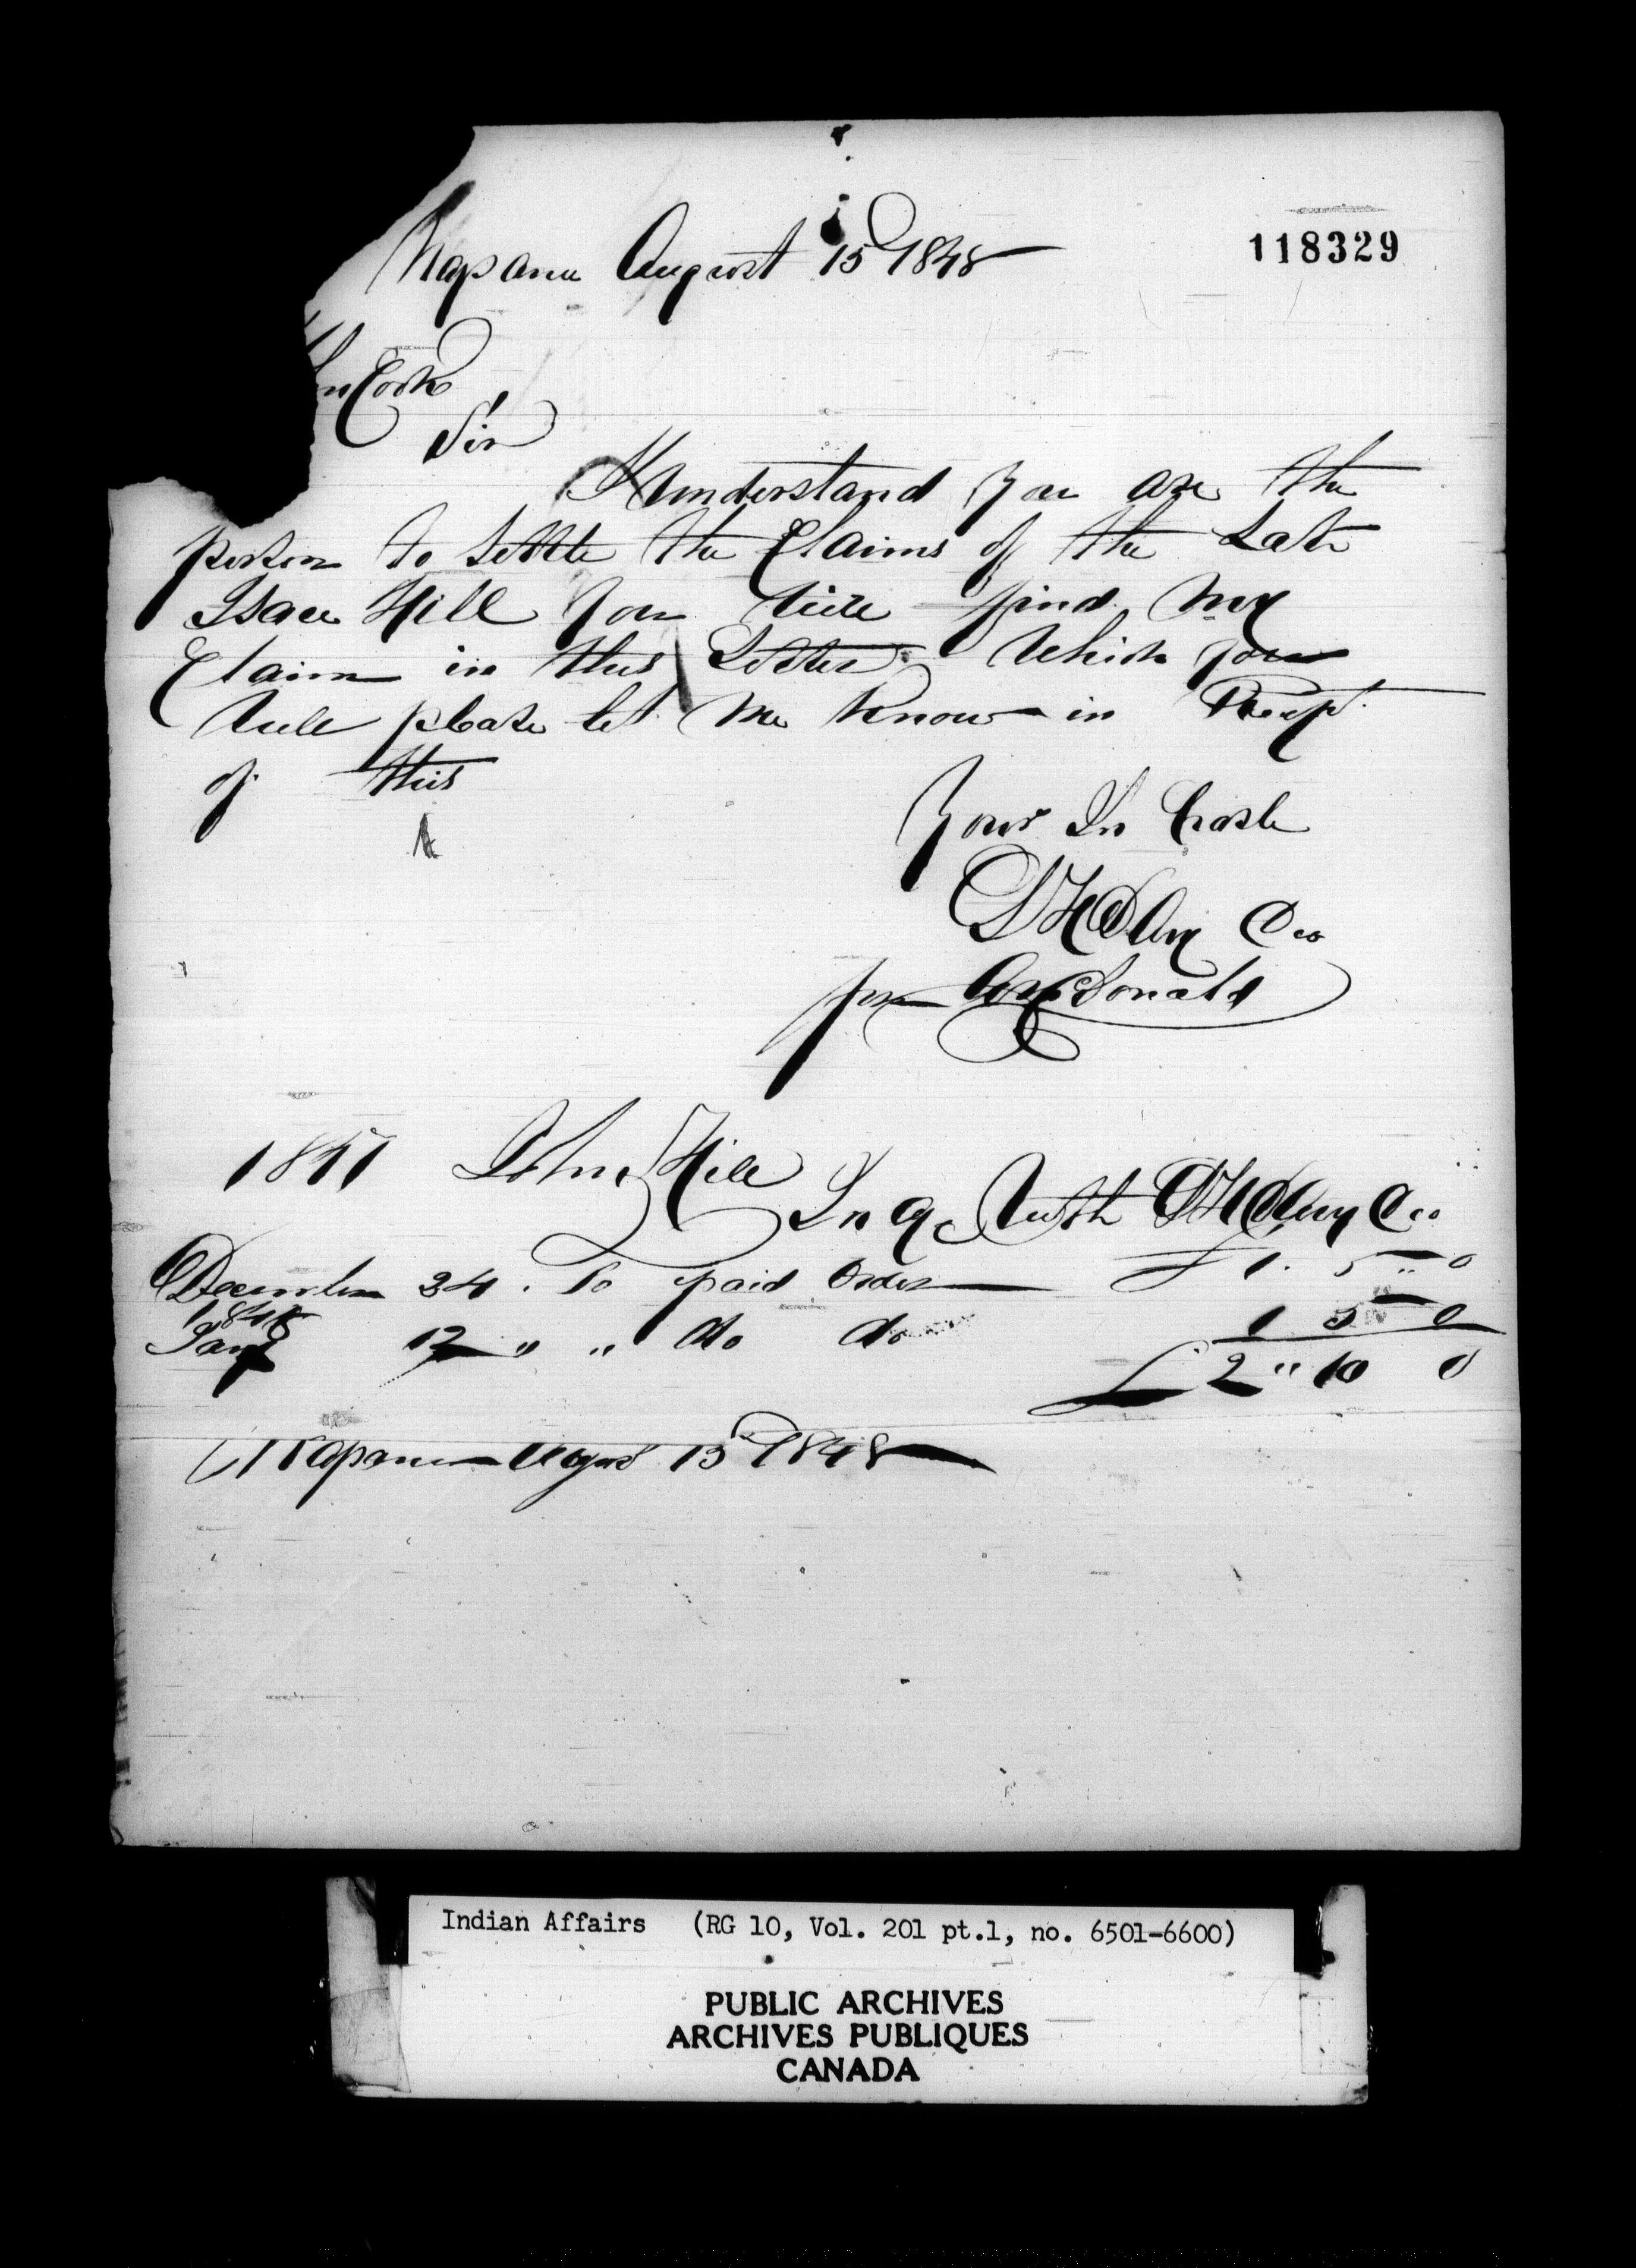 118329
Napanee August 15 1848
hn Cook
Sir
I Understand you are the
person to settle the Claims of the Late
Isace Hill you will find my
Claim in this Letter Which you
will please let me know in Recept
of this
Yours In
Co
per McDonald
1847 John Hill
In a/c With Co
December 24 . To paid Order £ 1. 5 .. 0
1848
Jany 12 " " do do 1 5 0
£ 2 " 10 0
Napanee 15 1848
Indian Affairs (RG 10, Vol. 201 pt.1, no. 6501-6600)
PUBLIC ARCHIVES
ARCHIVES PUBLIQUES
CANADA